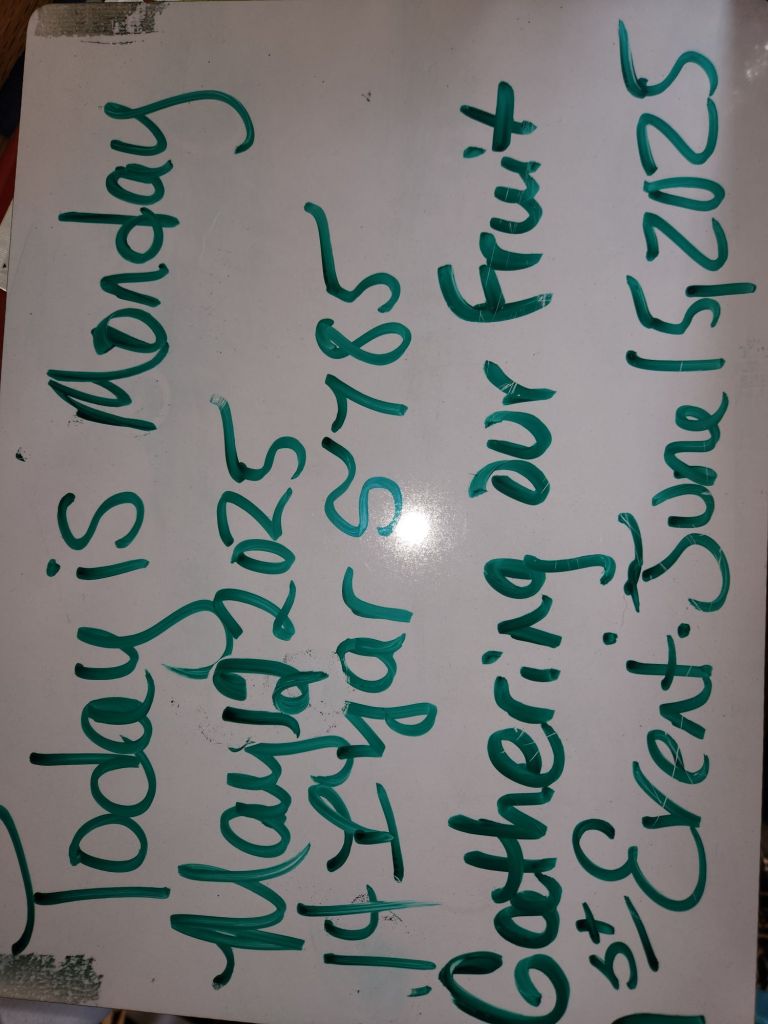 Today is Monday
May 19 2025
14 Iyar 5785
Gathering our Fruit
1st Event: June 15, 2025